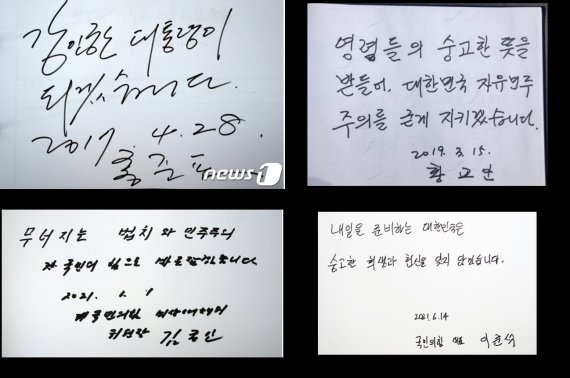 강인한 대통령이
되겠습니다.
2017. 4. 28.
홍준표
news1
영령들의 숭고한 뜻을
받들어, 대한민국 자유민주
주의를 굳게 지키겠습니다.
2019. 3. 15.
황교안
무너지는 법치와 민주주의
국민의 힘으로 바로잡겠습니다.
2021. 1. 1
국민의힘 비상대책위
위원장 김종인
내일을 준비하는 대한민국은
숭고한 희생과 헌신을 잊지 않겠습니다.
2021. 6. 14
국민의힘 대표 이준석